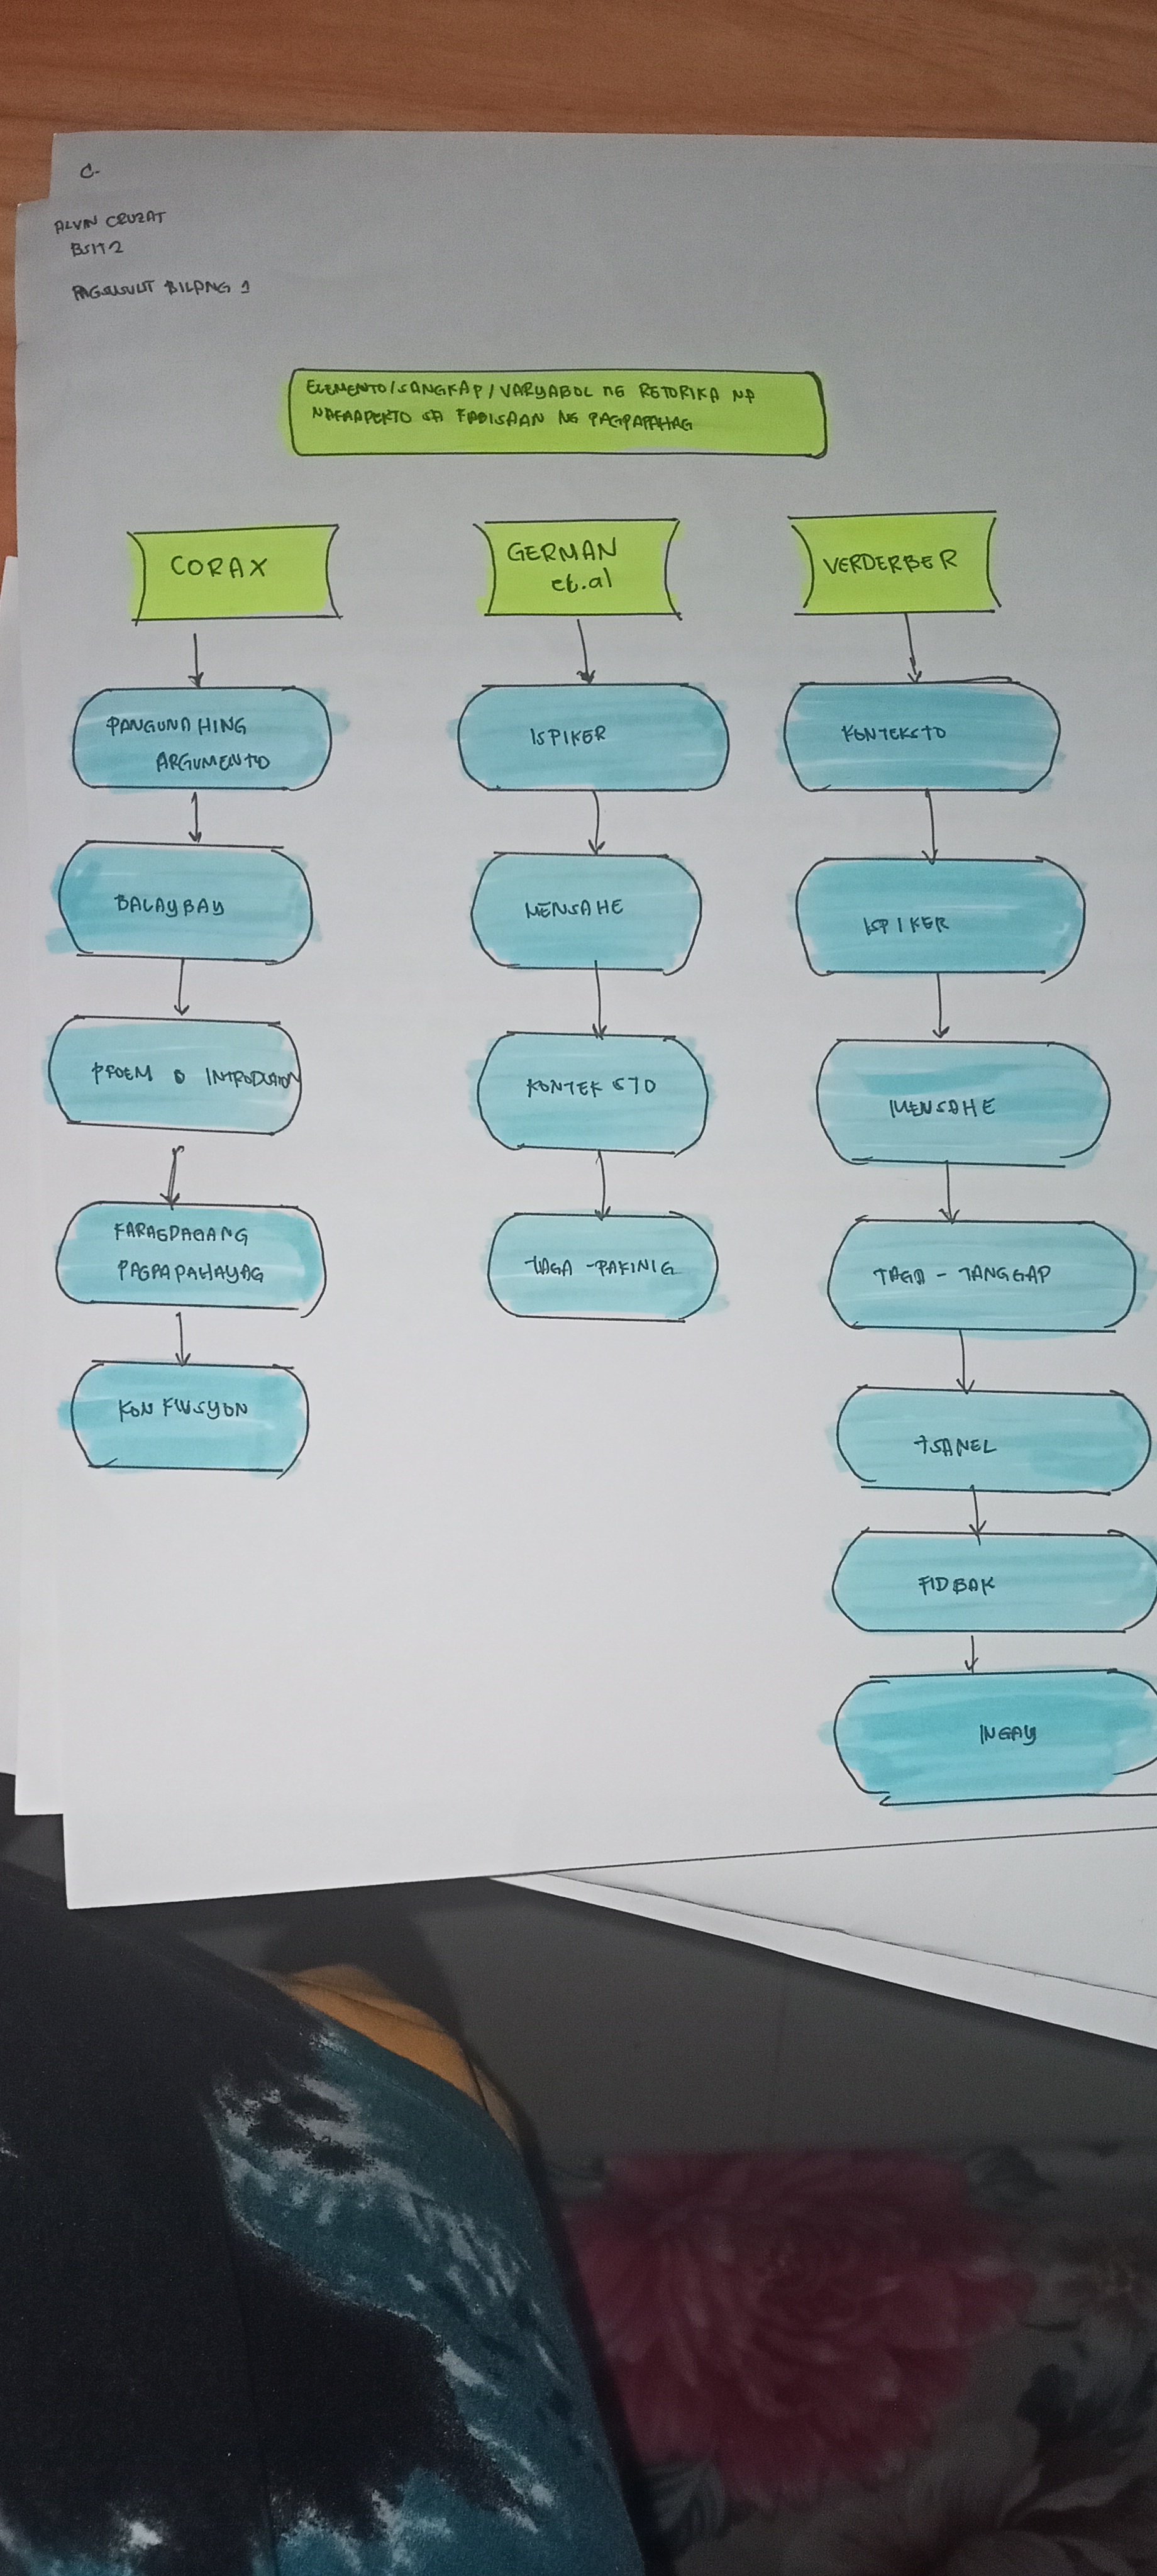 C.
ALVIN CRUZAT
BSIT2
PAGSUSULIT BILANG 1
ELEMENTO/SANGKAP/VARYABOL NG RETORIKA NA
NAKAAPEKTO SA KABISAAN NG PAGPAPAHAG
CORAX
PANGUNAHING
ARGUMENTO
BALAYBAY
PROEM O INTRODUKSYON
KARAGDAGANG
PAGPAPAHAYAG
KONKLUSYON
GERMAN
et.al
ISPIKER
MENSAHE
KONTEKSTO
TAGA-PAKINIG
VERDERBER
KONTEKSTO
ISPIKER
MENSAHE
TAGA-TANGGAP
TSANEL
FIDBAK
INGAY